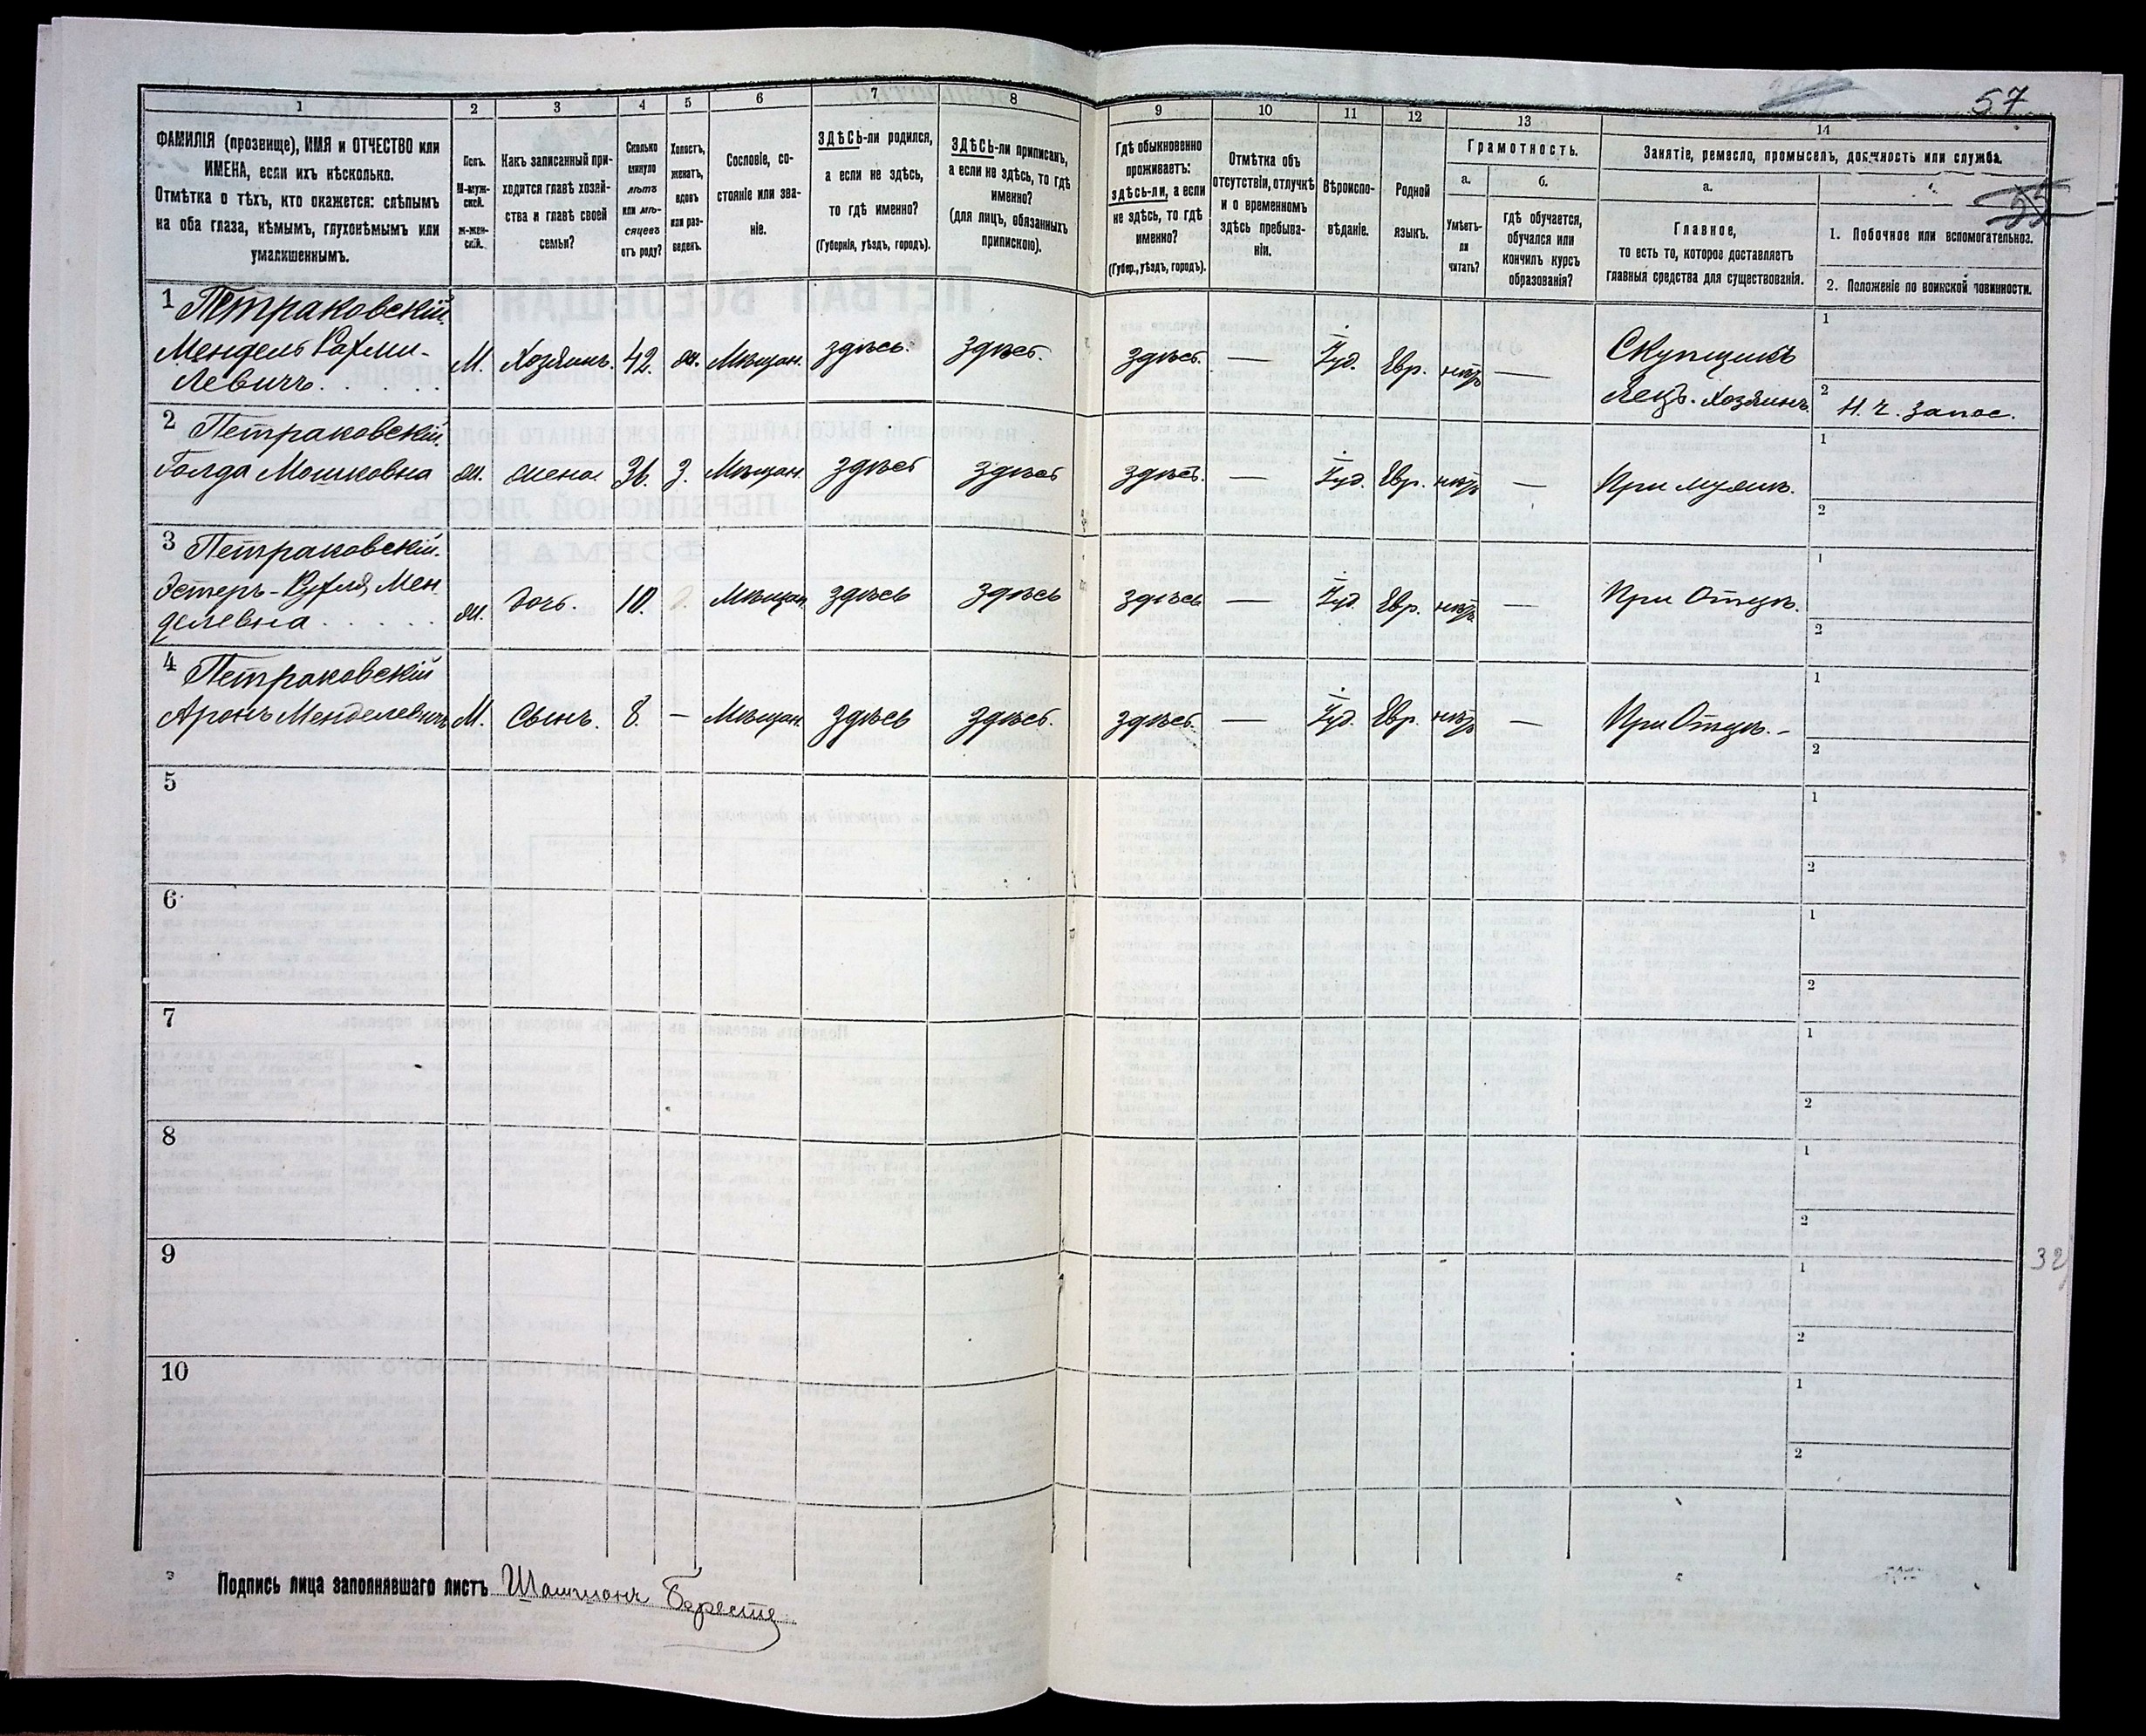 57
55
1
2
3
4
5
6
7
8
9
10
11
12
13
14
ФАМИЛІЯ (прозвище), ИМЯ и ОТЧЕСТВО или
ИМЕНА, если ихъ нѣсколько.
Отмѣтка о тѣхъ, кто окажется: слѣпымъ
на оба глаза, нѣмымъ, глухонѣмымъ или
умалишеннымъ.
Полъ.
М-муж-
ской.
ж-жен-
скій.
Какъ записанный при-
ходится главѣ хозяй-
ства и главѣ своей
семьи?
Сколько
минуло
лѣтъ
или мѣ-
сяцевъ
отъ роду?
Холостъ,
женатъ,
вдовъ
или раз-
веденъ.
Сословіе, со-
стояніе или зва-
ніе.
ЗДѢСЬ-ли родился,
а если не здѣсь,
то гдѣ именно?
(Губернія, уѣздъ, городъ).
ЗДѢСЬ-ли приписанъ,
а если не здѣсь, то гдѣ
именно?
(для лицъ, обязанныхъ
припискою).
Гдѣ обыкновенно
проживаетъ:
здѣсь-ли, а если
не здѣсь, то гдѣ
именно?
(Губер., уѣздъ, городъ).
Отмѣтка объ
отсутствіи, отлучкѣ
и о временномъ
здѣсь пребыва-
ніи.
Вѣроиспо-
вѣданіе.
Родной
языкъ.
Грамотность.
а.
Умѣетъ-
ли
читать?
б.
гдѣ обучается,
обучался или
кончилъ курсъ
образованія?
Занятіе, ремесло, промыселъ, должность или служба.
а.
Главное,
то есть то, которое доставляетъ
главныя средства для существованія.
1. Побочное или вспомогательное.
2. Положеніе по воинской повинности.
1 Петраковскій
Мендель Рахми-
левичъ.
М. Хозяинъ. 42. ж. Мѣщан. здѣсь. здѣсь. здѣсь. — Іуд. Евр. нѣтъ —
Скупщикъ
Яецъ. Хозяинъ.
1
2 Н. ч. запас.
2 Петраковскій.
Голда Мошковна ж. жена. 36. З. Мѣщан. здѣсь здѣсь здѣсь. — Іуд. Евр. нѣтъ — При мужѣ.
1
2
3 Петраковскій.
Эстеръ-Рухля Мен
делевна
ж. дочь. 10. Мѣщан. здѣсь здѣсь здѣсь — Іуд. Евр. нѣтъ — При Отцѣ.
1
2
4 Петраковскій
Аронъ Менделевичъ М. Сынъ. 8. — Мѣщан. здѣсь здѣсь. здѣсь. — Іуд. Евр. нѣтъ — При Отцѣ. -
1
2
5
1
2
6
1
2
7
1
2
8
1
2
9
1
2
32
10
1
2
Подпись лица заполнявшаго листъ